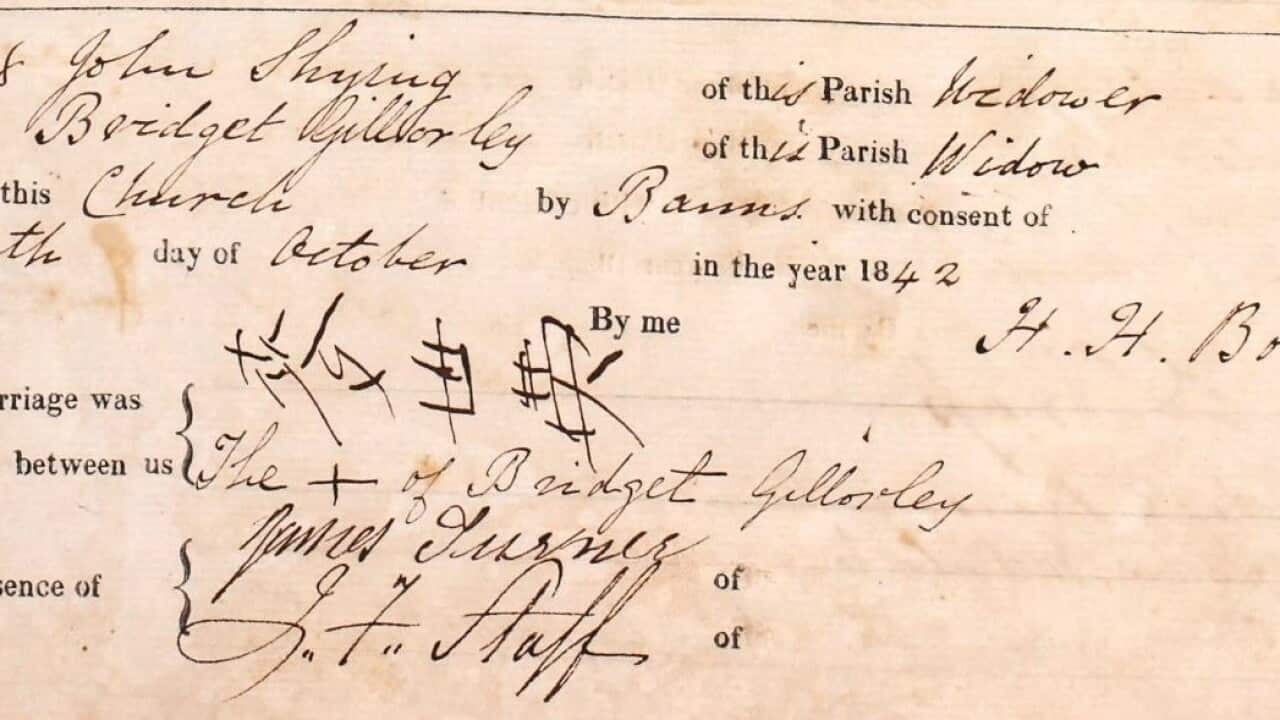 John Shying of this Parish Widower
Bridget Gillorley of this Parish Widow
this Church by Banns with consent of
th day of October in the year 1842
By me H. H. Bo
rriage was
between us The + of Bridget Gillorley
James Turner of
sence of
J. F. Staff of